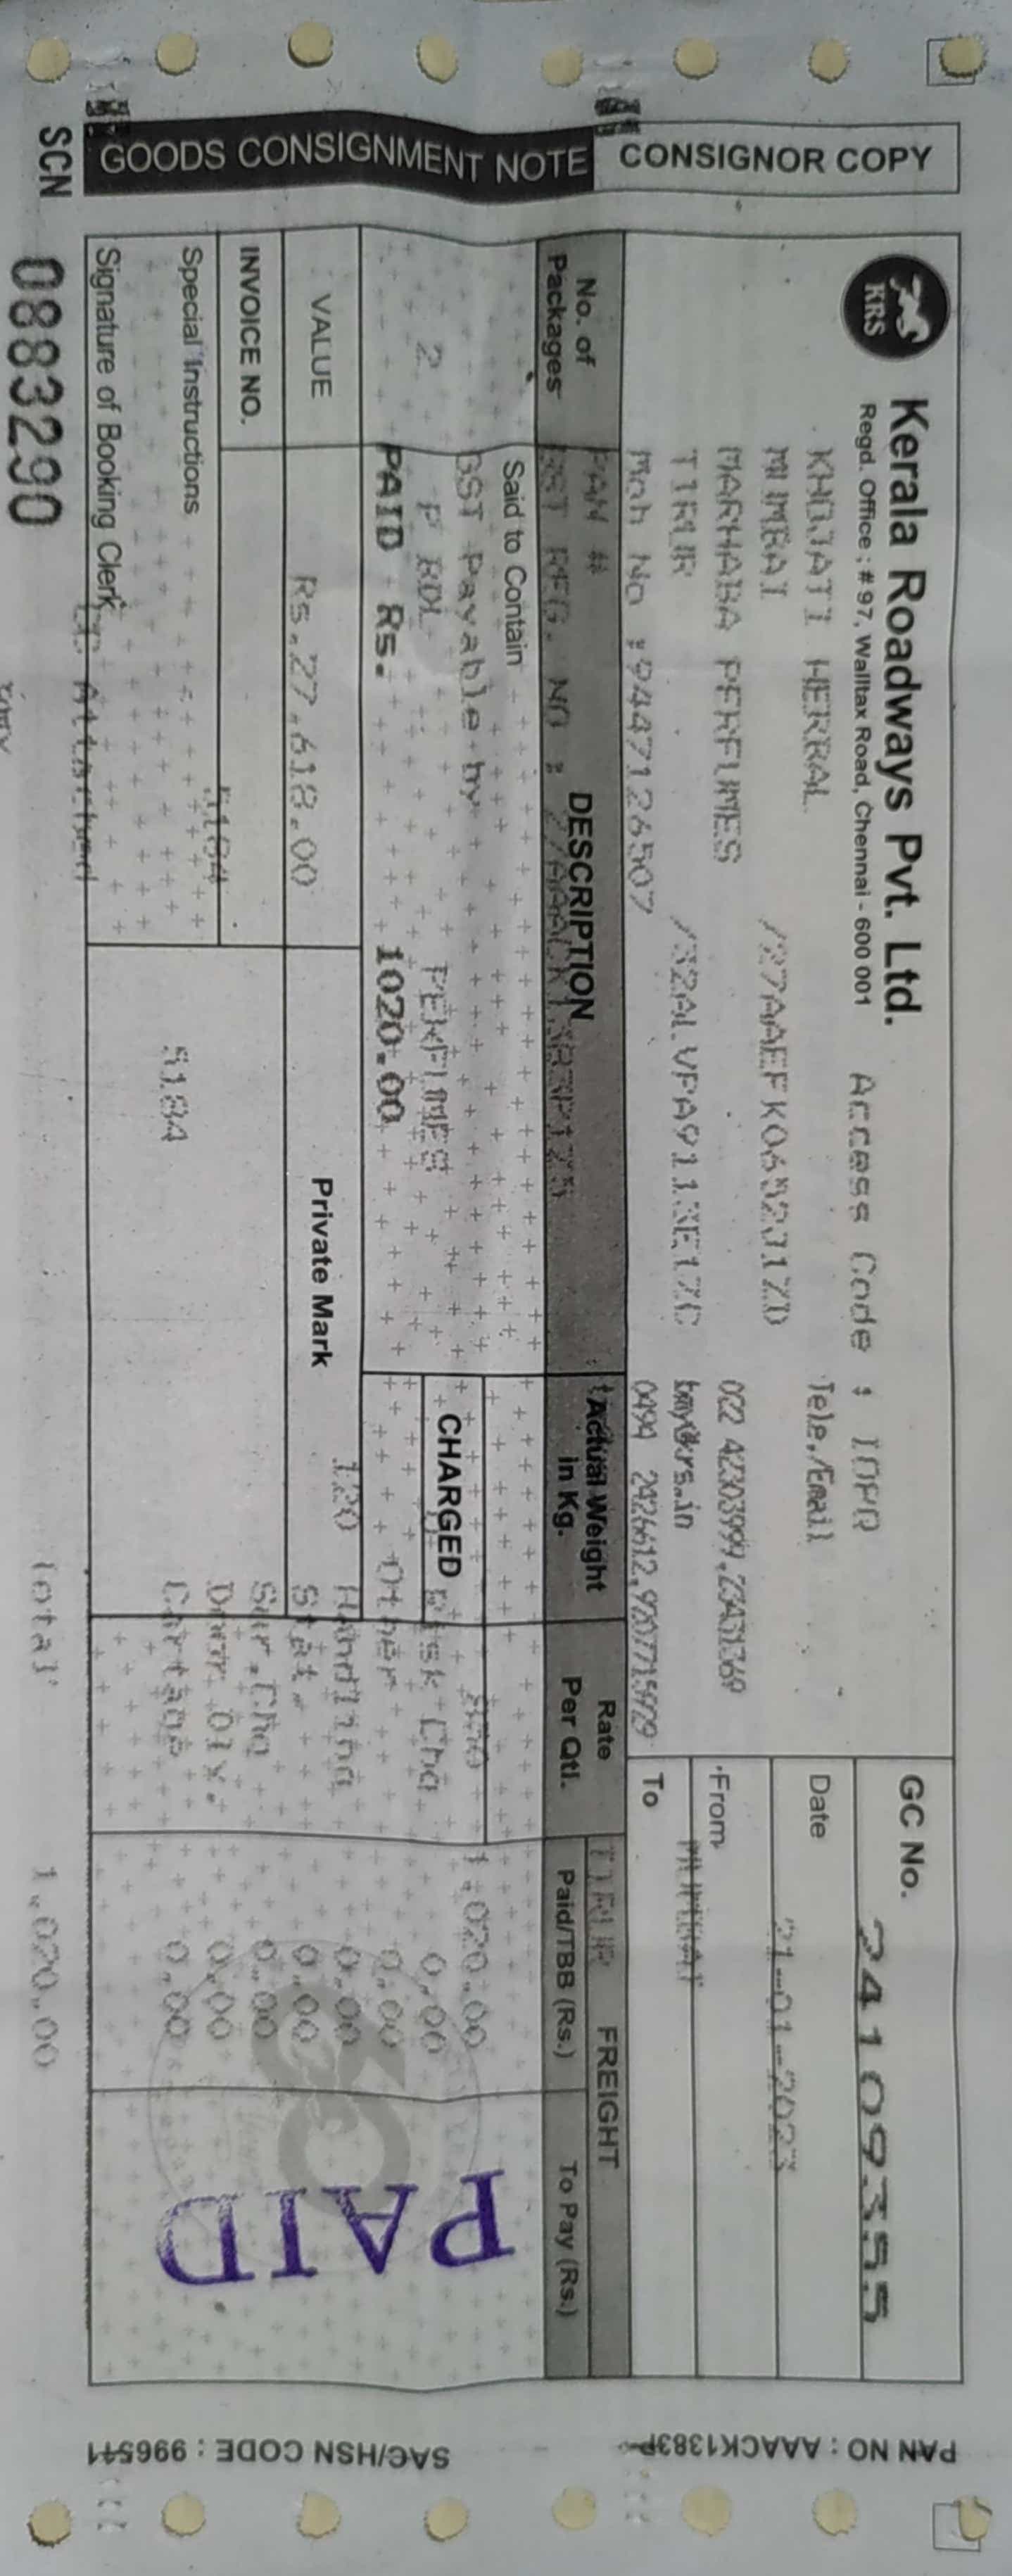 CONSIGNOR COPY
GOODS CONSIGNMENT NOTE
SCN 0883290
KRS
Kerala Roadways Pvt. Ltd.
Regd. Office : # 97, Walltax Road, Chennai - 600 001
Access Code : TOPR
Tele./Email
KHOJATI HERBAL
MUMBAI
MARHABA PERFUMES
TIRUR
/32ALVPA9113E1ZC
Moh No :9447126507
022 42303999,23431369
0494 2426612,9207715929
GC No. 24109355
Date 21-01-2023
From MUMBAI
To TIRUR
PAN #
No. of Packages
DESCRIPTION
Actual Weight in Kg.
Rate Per Qtl.
FREIGHT
Paid/TBB (Rs.)
To Pay (Rs.)
Said to Contain
GST Payable by
1,020.00
2 P BDL PERFUMES
CHARGED
Risk Chg 0.00
PAID Rs. 1020.00
Other 0.00
120
Handling 0.00
VALUE Rs.27,618.00
Private Mark
Stat. 0.00
INVOICE NO. 5184
Sur.Chg 0.00
Special Instructions
5184
Door Dly. 0.00
Cartage 0.00
Signature of Booking Clerk
Attached
Total 1,020.00
PAID
PAN NO : AAACK1383P
SAC/HSN CODE : 996511